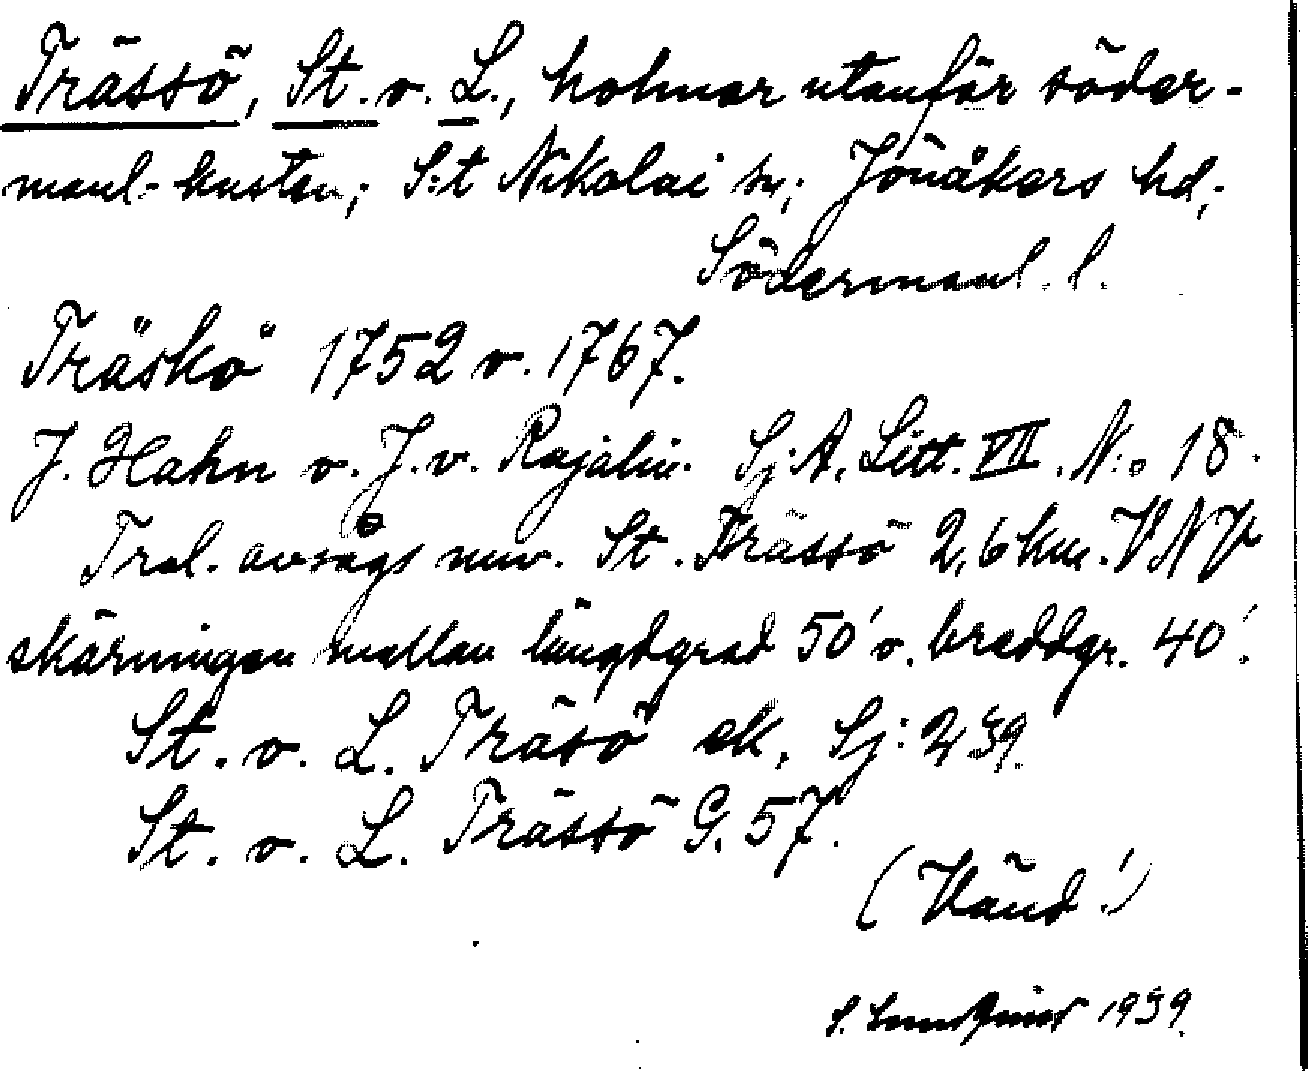 Trässö, St. o. L., holmar utanför söder-
manl. kusten; S:t Nikolai sn; Jönåkers hd;
Södermanl. l.
Träskö 1752 o. 1767.
J. Hahn o. J. v. Rajalin. Sj. A. Litt. VII. N:o 18.
Trol. avsågs nuv. St. Trässö 2,6 km. VNV
skärningen mellan längdgrad 50' o. breddgr. 40'.
St. o. L. Träsö ek. Sj: 239.
St. o. L. Trässö G. 57.
(Vänd!)
S. 1939.